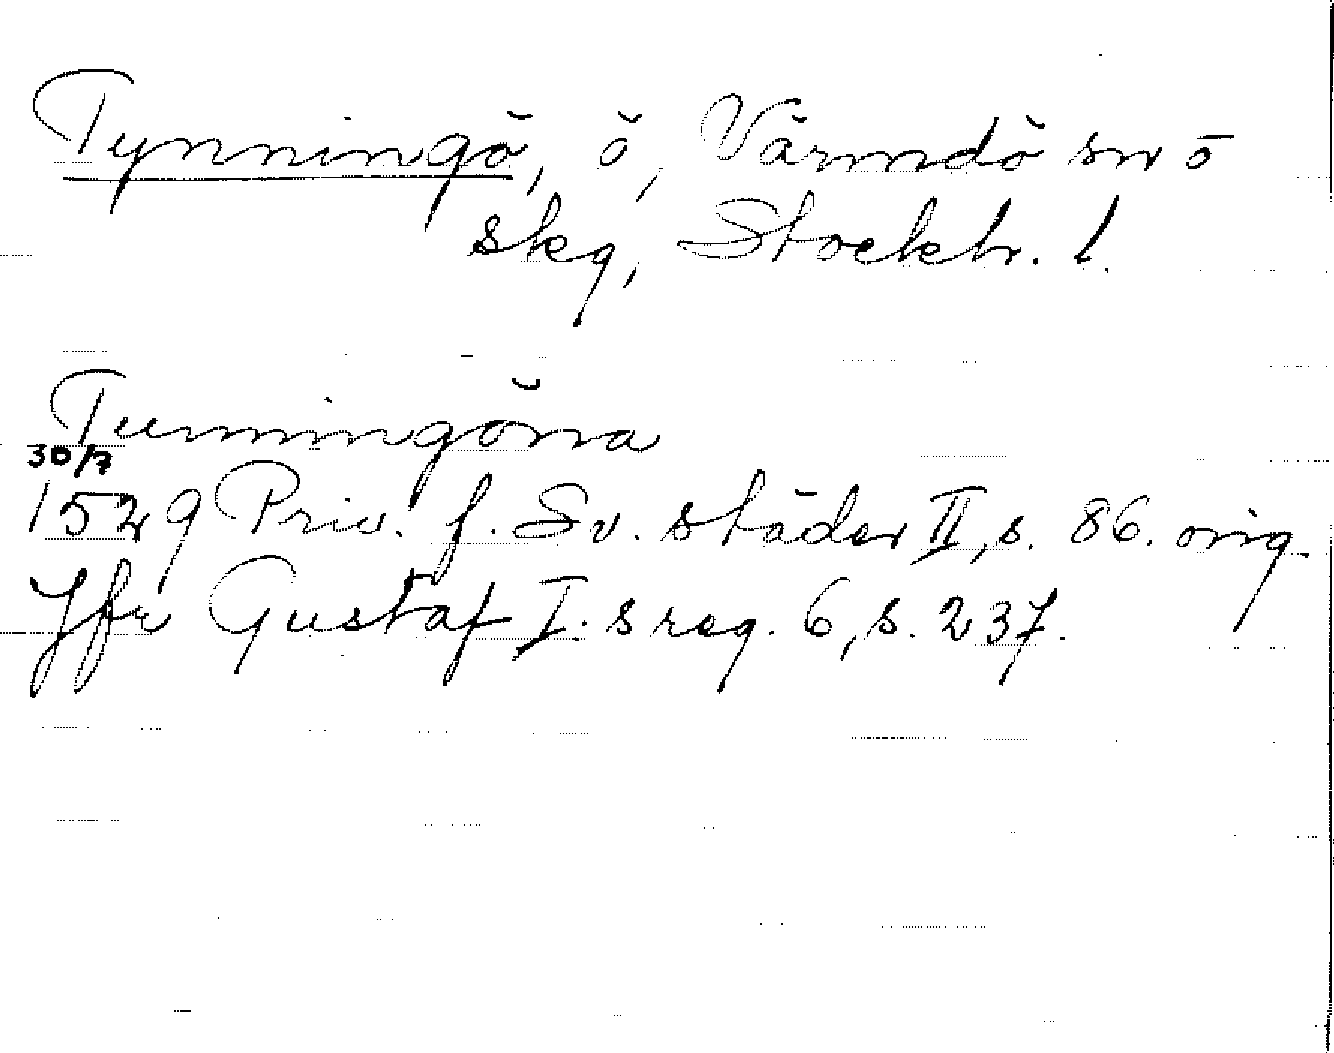 Tynningö, ö, Värmdö sn o
skg, Stockh. l.
Tunningöna
30/7
1529 Priv. f. Sv. städer II, s. 86. orig.
Jfr Gustaf I:s reg. 6, s. 237.